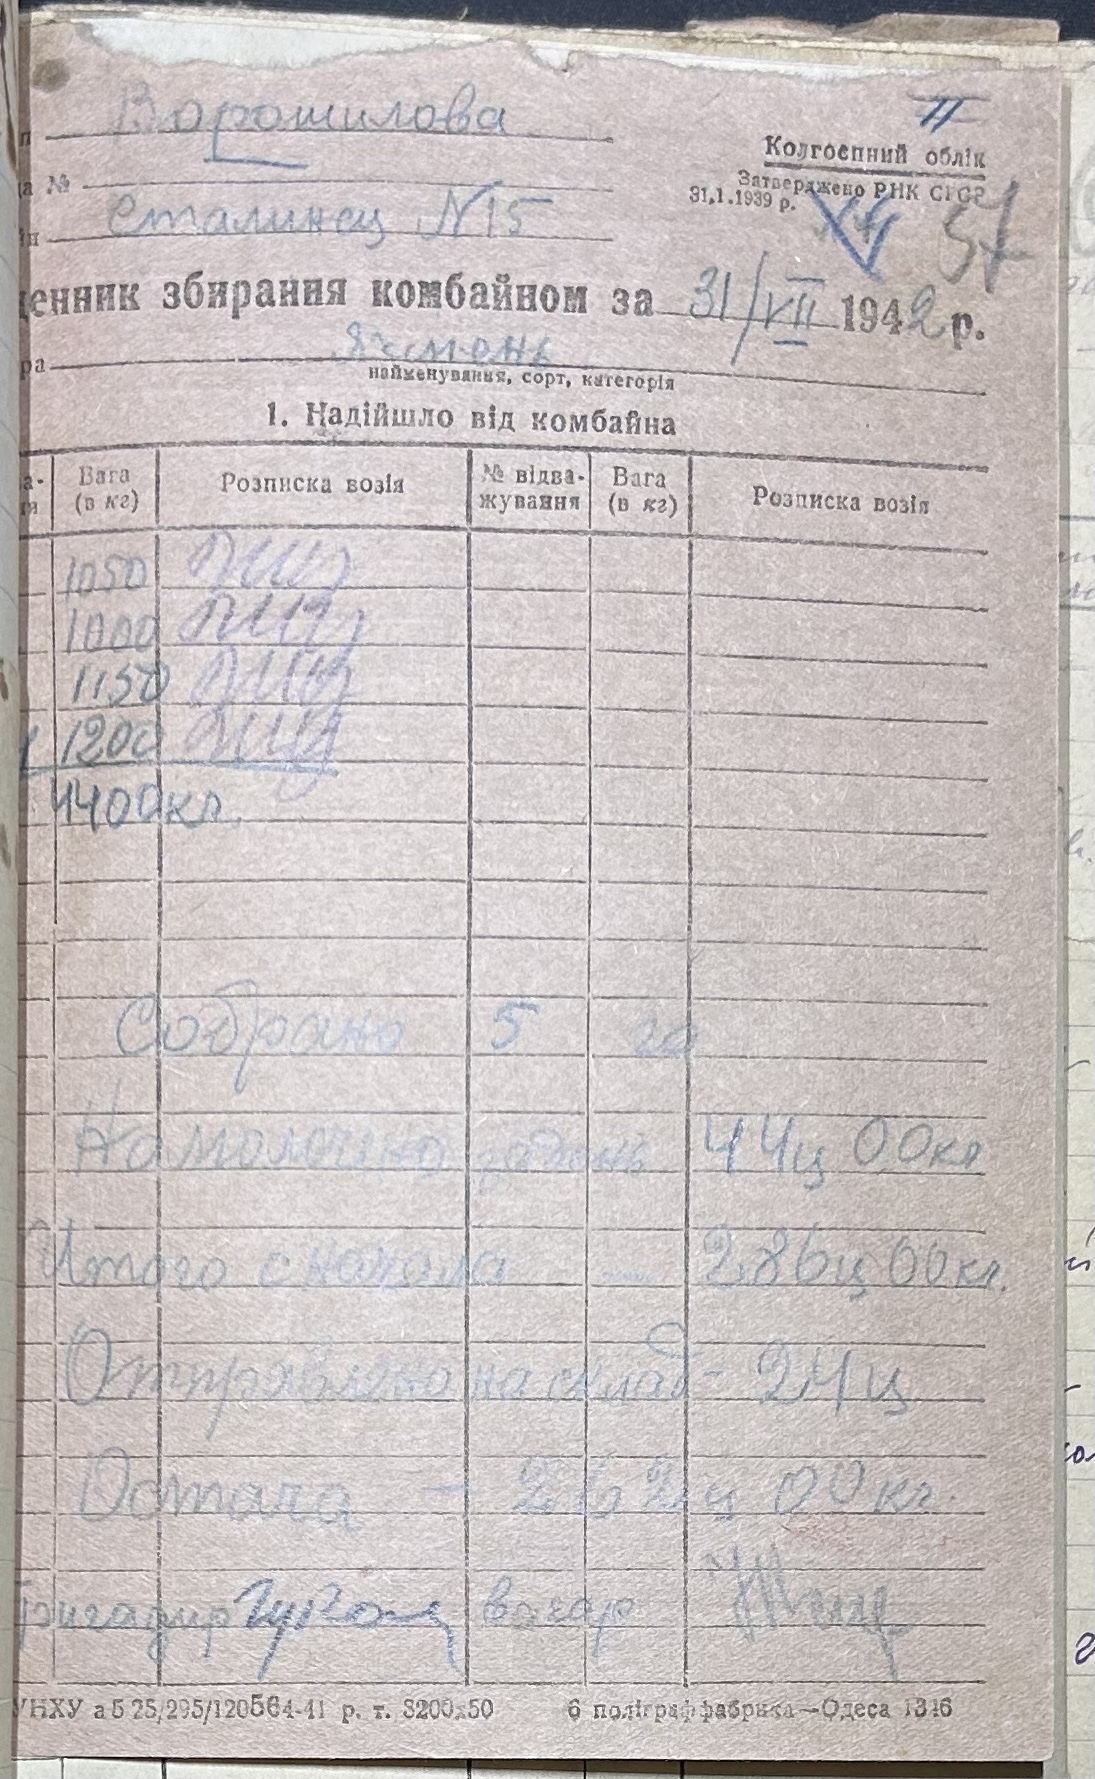 II
п Ворошилова
Колгоспний облік
Затверджено РНК СРСР
31.1.1939 р.
а №
57
йн Сталинец N 15
денник збирання комбайном за 31/VII 1942 р.
ра Ячмень
найменування, сорт, категорія
1. Надійшло від комбайна
Вага (в кг) Розписка возія № відва- жування Вага (в кг) Розписка возія
1050
1000
1150
1200
4400 кл.
Собрано 5 га
Намолочено за день 44ц 00кл
Итого с начала — 286ц 00кг.
Отправлено на склад - 24ц
Остача — 262ц 00кг.
Бригадир вагар
УНХУ а б 25/295/120564-41 р. т. 3200х50 6 поліграффабрика—Одеса 1346